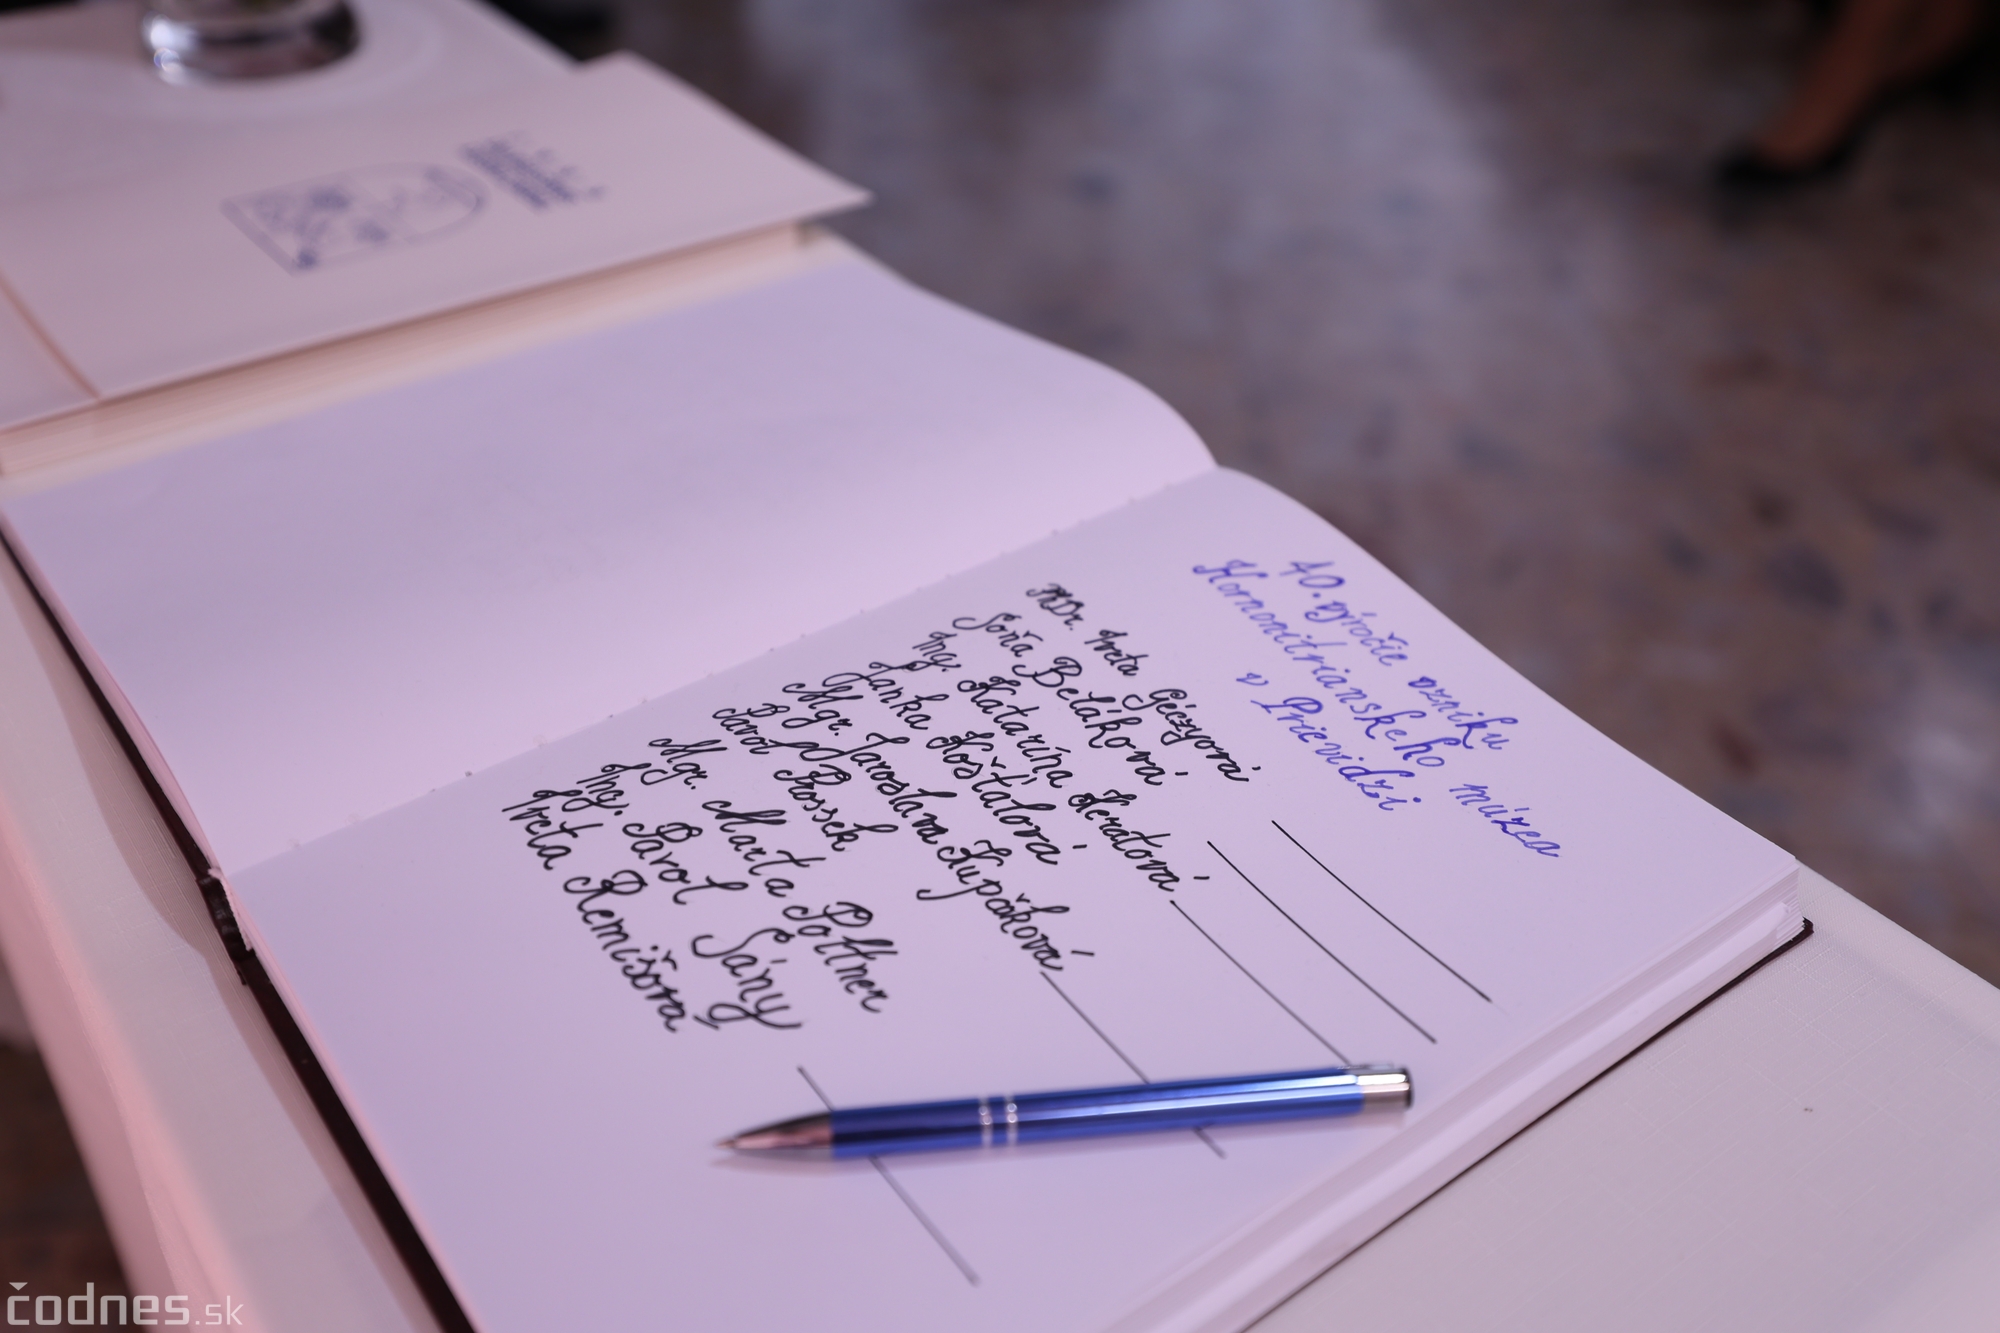 40. výročie vzniku
Hornonitrianskeho múzea
v Prievidzi
PhDr. Iveta Géczyová
Soňa Beláková
Ing. Katarína Keratová
Janka Košťálová
Mgr. Jaroslava Kupčáková
Pavol Prossek
Mgr. Marta Pottner
Ing. Pavol Sány
Iveta Remišová
čodnes.sk